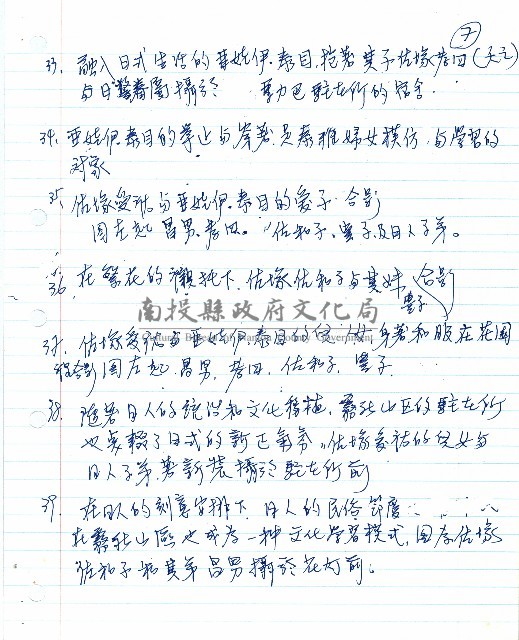 7
33. 融入日式生活的亞娃伊.泰目,揹著其子佐塚若四(天之)
與日警眷屬攝於 勃力巴駐在所的宿舍.
34. 亞娃伊.泰目的舉止與穿著是泰雅婦女模仿,與學習的
對象
35. 佐塚愛祐與亞娃伊.泰目的愛子合影
圖左起昌男.若四.佐和子.豐子及日人子弟。
36. 在繁花的襯托下,佐塚佐和子與其妹豐子合影
南投縣政府文化局
Cultural Bureau of Nantou County Government
37. 佐塚愛祐與亞娃伊泰目的 身著和服在花園
合影圖左起.昌男.若四.佐和子.豐子
38. 隨著日人的統治和文化移植,霧社山區的駐在所
也交織了日式的新正氣氛,佐塚愛祐的兒女與
日人子弟.著新裝攝於駐在所前
39. 在日人的刻意安排下.日人的民俗節慶
在霧社山區也成為一種文化學習模式,圖為佐塚
佐和子和其弟昌男攝於花燈前。